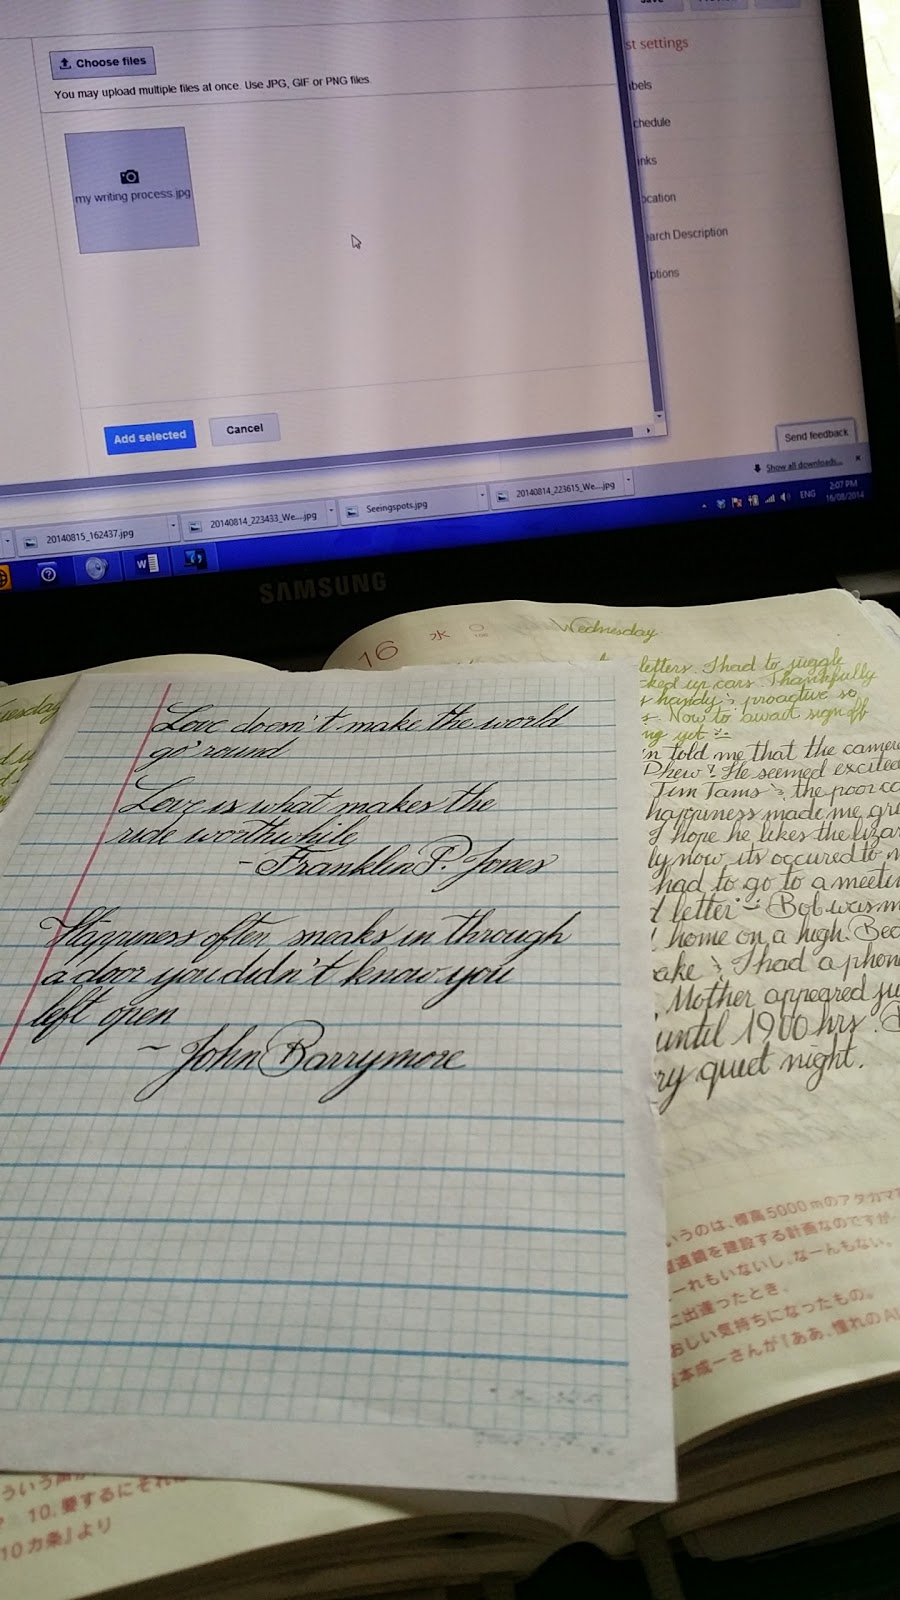 Save
Choose files
You may upload multiple files at once. Use JPG, GIF or PNG files.
my writing process.jpg
Add selected
Cancel
st settings
bels
chedule
inks
ocation
earch Description
ptions
Send feedback
Show all downloads...
20140815_162437.jpg
20140814_223433_We....jpg
Seeingspots.jpg
20140814_223615_We....jpg
ENG
2:07 PM
16/08/2014
SAMSUNG
Tuesday
16 水
Wednesday
letters. I had to juggle
ked up cars. Thankfully
handy & proactive so
s. Now to await sign off
ng yet
'n told me that the camera
Phew! He seemed excited
Tim Tams & the poor co
happiness made me gr
I hope he likes the lizar
ly now, its occured to m
had to go to a meetin
t letter Bob was m
home on a high. Bec
ake & I had a phon
Mother appeared su
until 1900 hrs.
ry quiet night.
Love doesn't make the world
go 'round
Love is what makes the
ride worthwhile
- Franklin P. Jones
Happiness often sneaks in through
a door you didn't know you
left open
~ John Barrymore
いうのは、標高5000mのアタカマ
遠鏡を建設する計画なのですが
ーれもいないし、なーんもない。
に出逢ったとき、
おしい気持ちになったもの。
本成一さんが「ああ、憧れのAL
ういう
10.愛するにそれ
10カ条』より